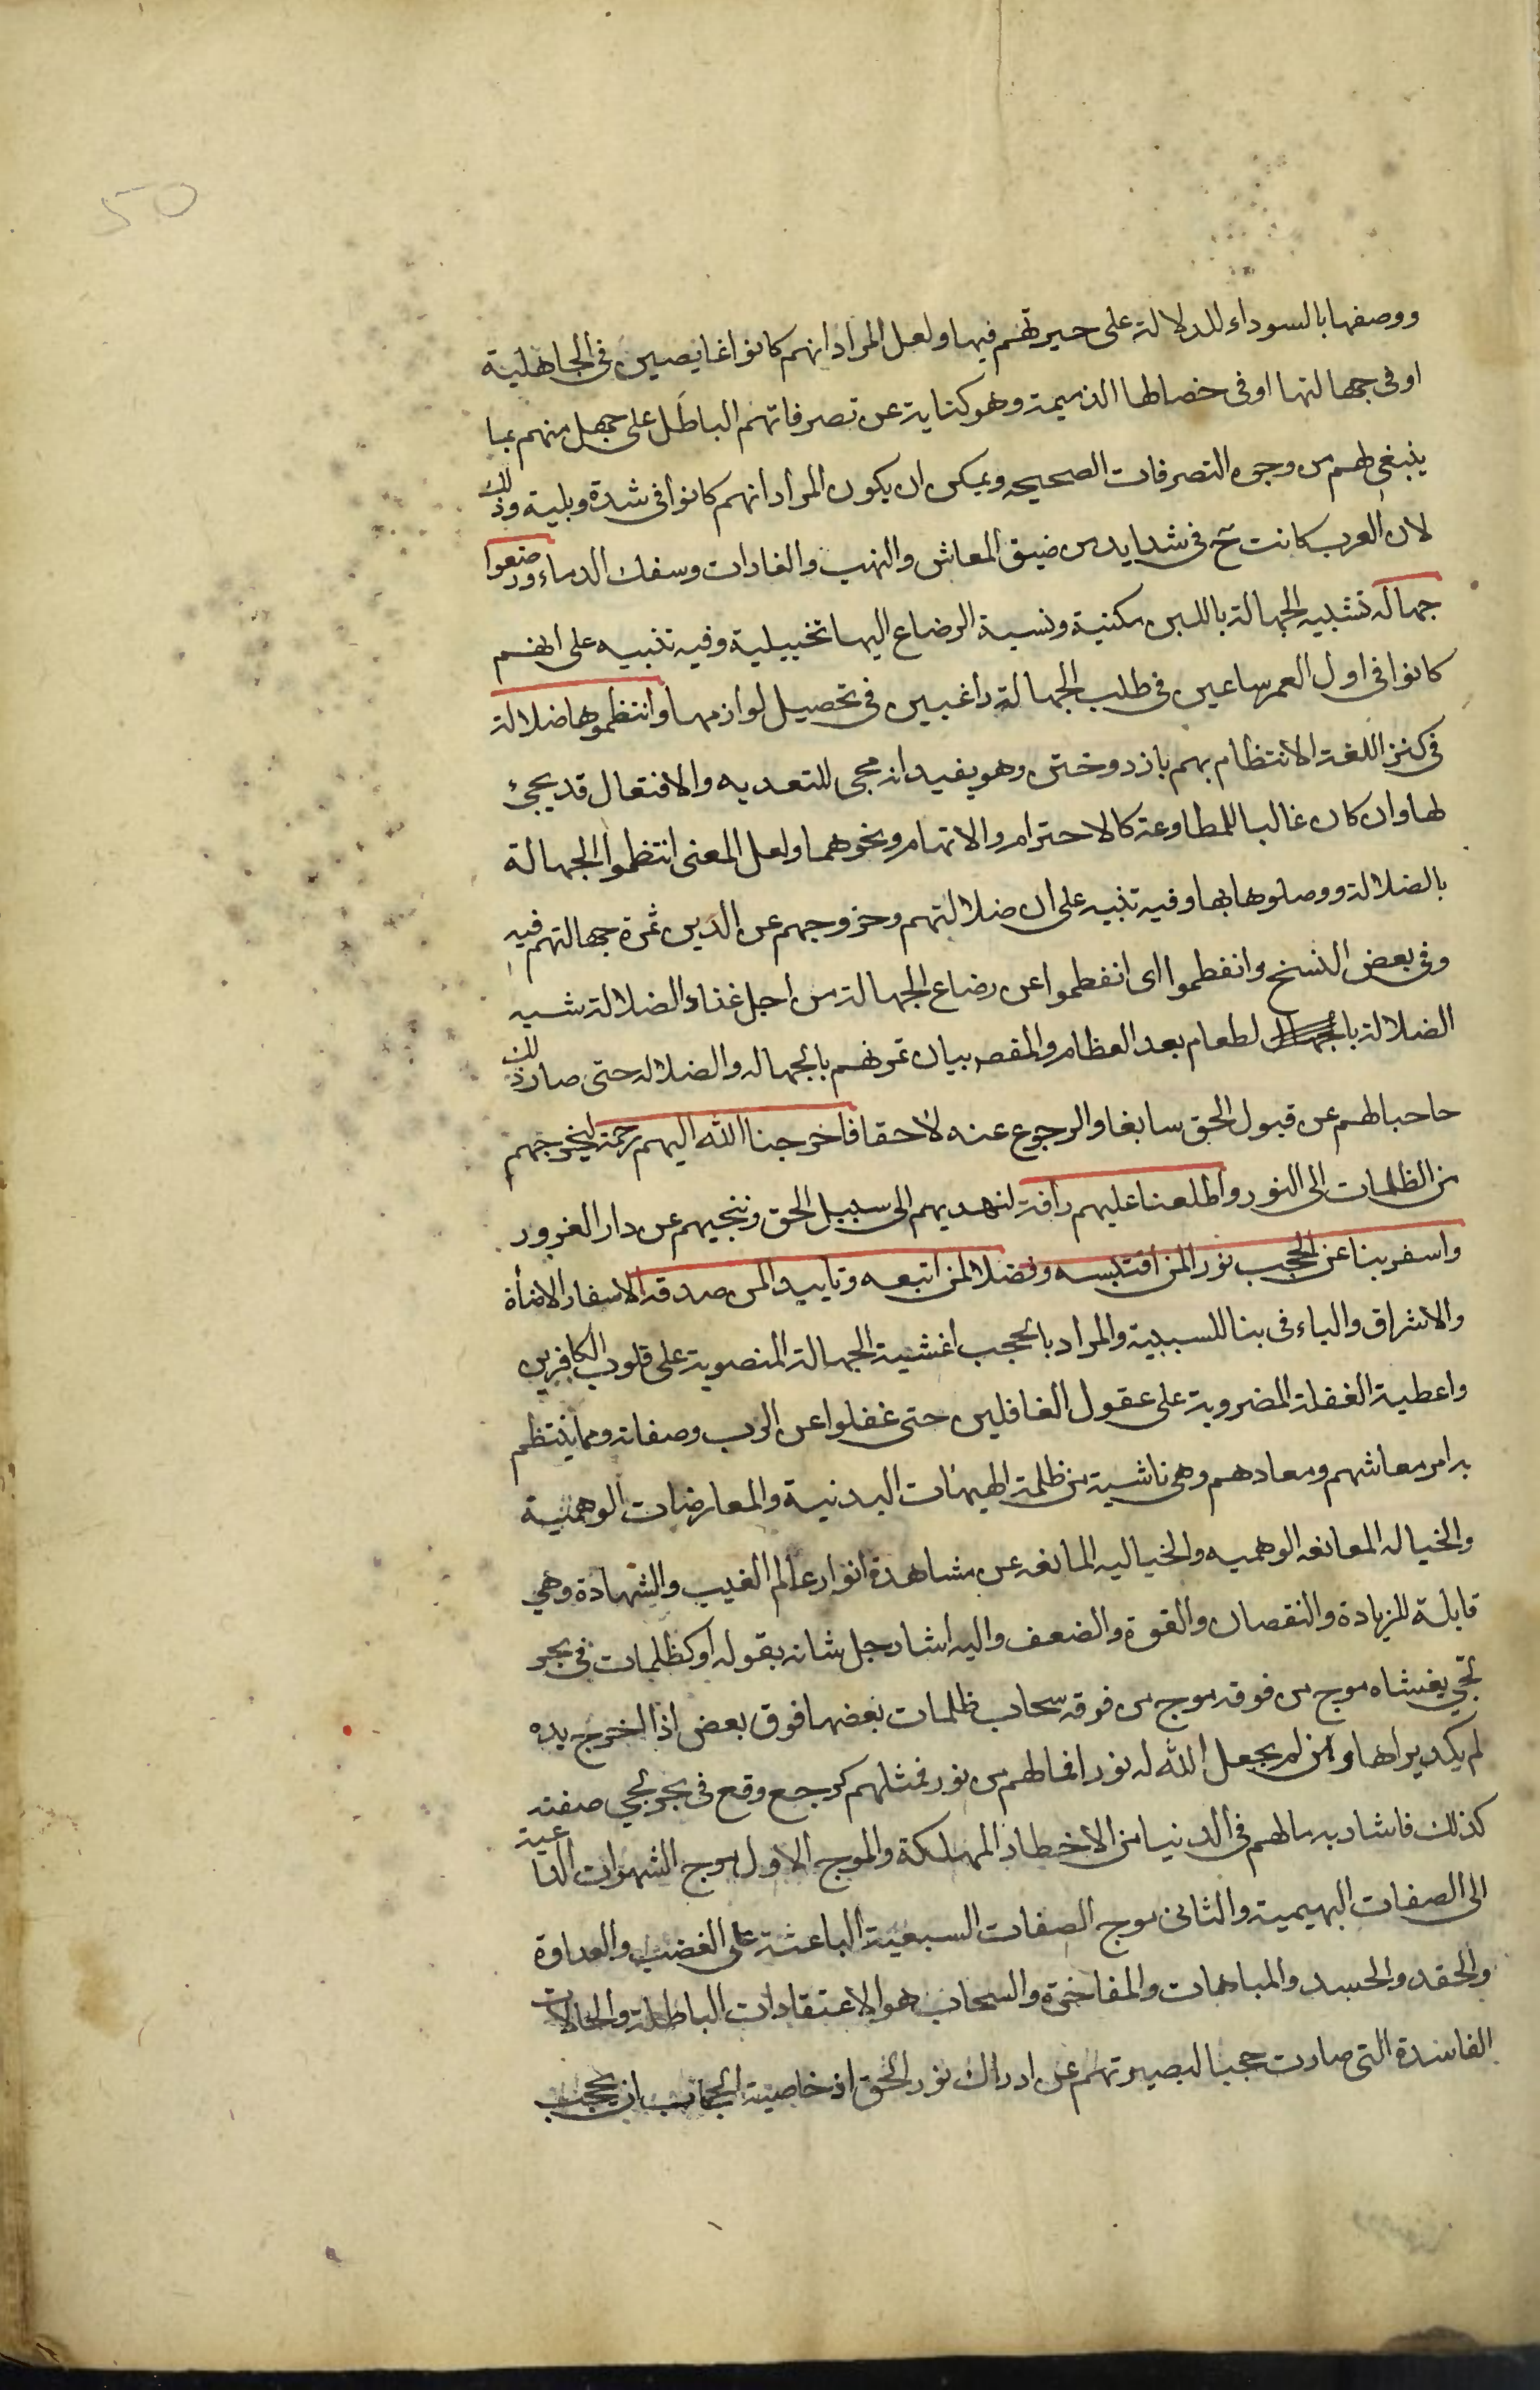 50
ووصفها بالسوداء للدلالة على حيرتهم فيها ولعل المراد انهم كانوا غايصين فى الجاهلية
او فى جهالتها او فى خصالها الذميمة وهو كناية عن تصرفاتهم الباطل على جهل منهم بما
ينبغى لهم من وجوه التصرفات الصحيحه ويمكن ان يكون المراد انهم كانوا فى شدة وبلية وذلك
لان العرب كانت تح فى شدايد من ضيق المعاش والنهب والغارات وسفك الدماء ورضعوا
جهاله تشبيه الجهالة باللبن مكنية ونسبة الرضاع اليها تخييلية وفيه تنبيه على انهم
كانوا فى اول العمر ساعين فى طلب الجهالة راغبين فى تحصيل لوازمها وانتظموها ضلالة
فى كنز اللغة الانتظام بهم باز دوختن وهو يفيد انه مجى للتعديه والافتعال قد يجئ
لها وان كان غالبا للمطاوعة كالاحترام والاتهام ونحوهما ولعل المعنى انتظموا الجهالة
بالضلالة ووصلوها بها وفيه تنبيه على ان ضلالتهم وخروجهم عن الدين ثمرة جهالتهم فيه
وفى بعض النسخ وانفطموا اى انفطموا عن رضاع الجهالة من اجل غذاء الضلالة شبه
الضلالة با لطعام بعد العظام والمقصر بيان تمرنهم بالجهاله والضلاله حتى صار ذلك
حاحبا لهم عن قبول الحق سابغا والرجوع عنه لاحقا فاخرجنا الله اليهم رحمة ليخرجهم
من الظلمات الى النور واطلعنا عليهم رافة لنهديهم الى سبيل الحق وننجيهم عن دار الغرور
واسفر بنا عن الحجب نورا لمن اقتبسه وفضلا لمن اتبعه وتاييدا لمن صدقه الاسفار الاضأة
والاشراق والباء فى بنا للسببية والمراد بالحجب اغشية الجهالة المنصوبة على قلوب الكافرين
واعطية الغفلة المضروبة على عقول الغافلين حتى غفلوا عن الرب وصفاته ومما ينتظم
به امر معاشهم ومعادهم وهى ناشية من ظلمة الهيئات البدنية والمعارضات الوهمية
والخياله المعانعه الوهميه والخياليه المانعه عن مشاهدة انوار عالم الغيب والشهادة وهى
قابلة للزيادة والنقصان والقوة والضعف واليه اشار جل شانه بقوله او كظلمات فى بحر
لجى يغشاه موج من فوقه موج من فوقه سحاب ظلمات بعضها فوق بعض اذا اخرج يده
لم يكد يراها ومن لم يجعل الله له نورا فما لهم من نور فمثلهم كرجع وقع فى بحر لجى صفته
كذلك فاشار به ما لهم فى الدنيا من الاخطار المهلكة والموج الاول موج الشهوات الداعية
الى الصفات البهيمية والثانى موج الصفات السبعية الباعثة على الغضب والعداوة
والحقد والحسد والمباهات والمفاخرة والسحاب هو الاعتقادات الباطلة والحالات
الفاسدة التى صارت حجبا لبصيرتهم عن ادراك نور الحق اذ خاصية الحجاب ان يحجب